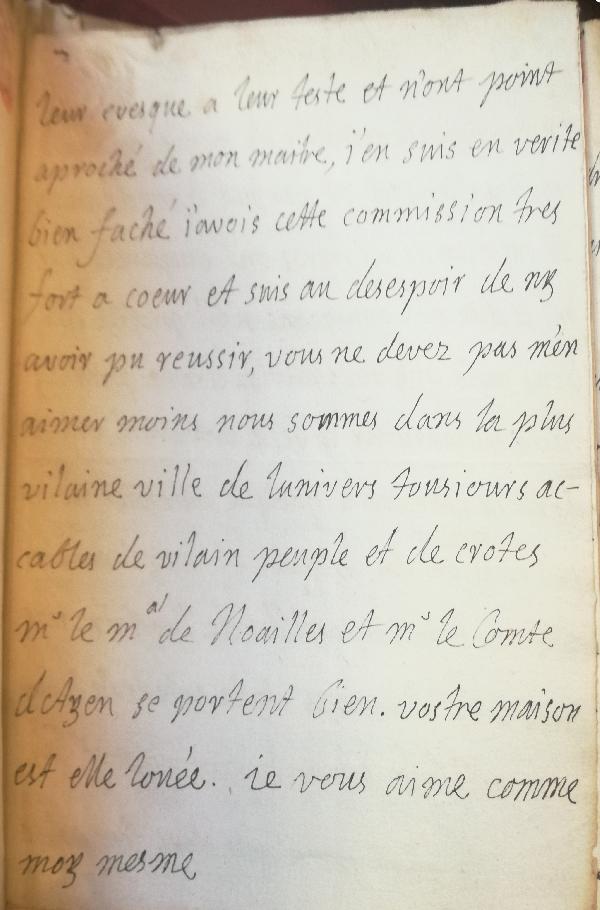 leur evesque a leur teste et n'ont point
aproché de mon maitre, i'en suis en verite
bien faché i'avois cette commission tres
fort a coeur et suis au desespoir de ny
avoir pu reussir, vous ne devez pas m'en
aimer moins nous sommes dans la plus
vilaine ville de lunivers tousiours ac-
cables de vilain peuple et de crotes
mr le mal de Noailles et mr le Comte
dAyen se portent bien. vostre maison
est elle louée. ie vous aime comme
moy mesme